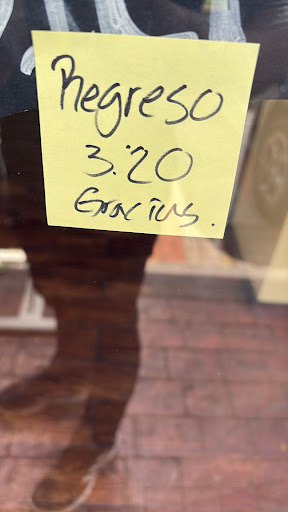 Regreso
3:20
Gracias.